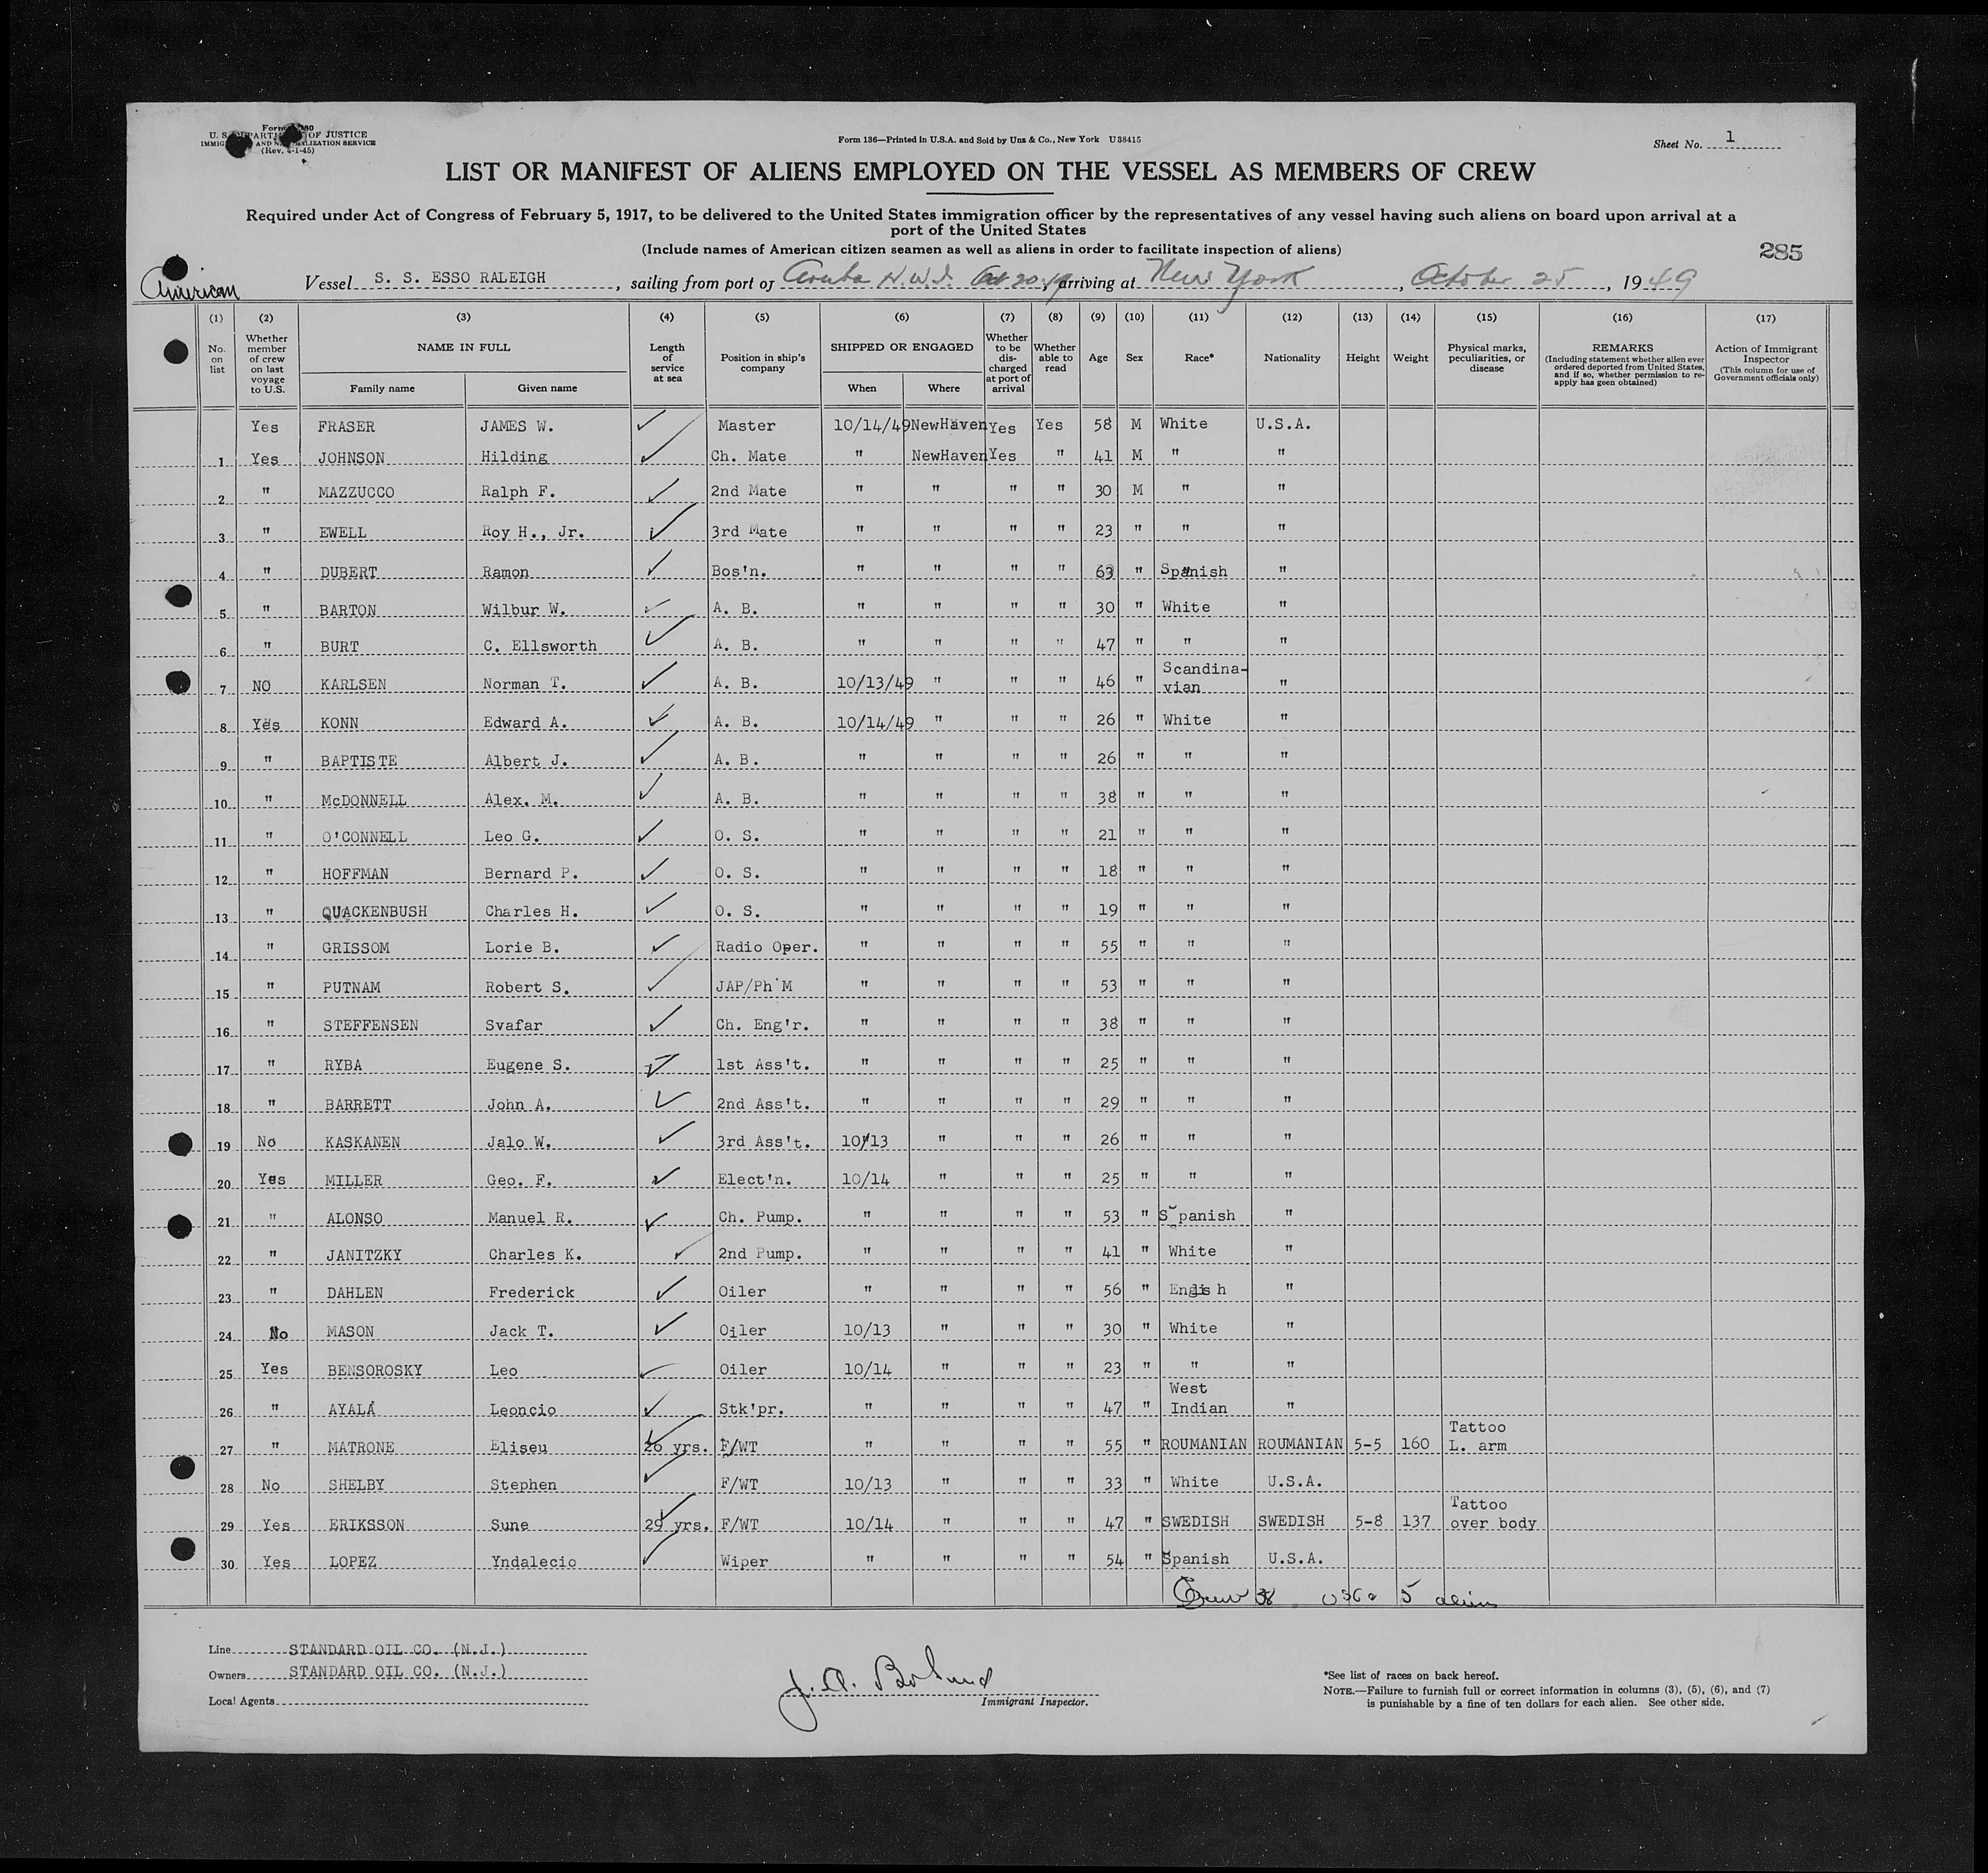 Form 680
U. S. DEPARTMENT OF JUSTICE
IMMIGRATION AND NATURALIZATION SERVICE
(Rev. 4-1-45)
Form 136—Printed in U.S.A. and Sold by Unz & Co., New York U38415
Sheet No. 1
LIST OR MANIFEST OF ALIENS EMPLOYED ON THE VESSEL AS MEMBERS OF CREW
Required under Act of Congress of February 5, 1917, to be delivered to the United States immigration officer by the representatives of any vessel having such aliens on board upon arrival at a
port of the United States
(Include names of American citizen seamen as well as aliens in order to facilitate inspection of aliens)
285
American
Vessel S. S. ESSO RALEIGH, sailing from port of Aruba N.W.I. Oct 20 49, arriving at New York, October 25, 1949
(1) (2) (3) (4) (5) (6) (7) (8) (9) (10) (11) (12) (13) (14) (15) (16) (17)
No. on list Whether member of crew on last voyage to U.S. NAME IN FULL Family name Given name Length of service at sea Position in ship's company SHIPPED OR ENGAGED When Where Whether to be discharged at port of arrival Whether able to read Age Sex Race* Nationality Height Weight Physical marks, peculiarities, or disease REMARKS (Including statement whether alien ever ordered deported from United States, and if so, whether permission to re-apply has geen obtained) Action of Immigrant Inspector (This column for use of Government officials only)
Yes FRASER JAMES W. Master 10/14/49 NewHaven Yes Yes 58 M White U.S.A.
1 Yes JOHNSON Hilding Ch. Mate " NewHaven Yes " 41 M " "
2 " MAZZUCCO Ralph F. 2nd Mate " " " " 30 M " "
3 " EWELL Roy H., Jr. 3rd Mate " " " " 23 " " "
4 " DUBERT Ramon Bos'n. " " " " 63 " Spanish "
5 " BARTON Wilbur W. A. B. " " " " 30 " White "
6 " BURT C. Ellsworth A. B. " " " " 47 " " "
7 NO KARLSEN Norman T. A. B. 10/13/49 " " " 46 " Scandina-vian "
8 Yes KONN Edward A. A. B. 10/14/49 " " " 26 " White "
9 " BAPTISTE Albert J. A. B. " " " " 26 " " "
10 " McDONNELL Alex. M. A. B. " " " " 38 " " "
11 " O'CONNELL Leo G. O. S. " " " " 21 " " "
12 " HOFFMAN Bernard P. O. S. " " " " 18 " " "
13 " QUACKENBUSH Charles H. O. S. " " " " 19 " " "
14 " GRISSOM Lorie B. Radio Oper. " " " " 55 " " "
15 " PUTNAM Robert S. JAP/Ph'M " " " " 53 " " "
16 " STEFFENSEN Svafar Ch. Eng'r. " " " " 38 " " "
17 " RYBA Eugene S. 1st Ass't. " " " " 25 " " "
18 " BARRETT John A. 2nd Ass't. " " " " 29 " " "
19 No KASKANEN Jalo W. 3rd Ass't. 10/13 " " " 26 " " "
20 Yes MILLER Geo. F. Elect'n. 10/14 " " " 25 " " "
21 " ALONSO Manuel R. Ch. Pump. " " " " 53 " Spanish "
22 " JANITZKY Charles K. 2nd Pump. " " " " 41 " White "
23 " DAHLEN Frederick Oiler " " " " 56 " English "
24 No MASON Jack T. Oiler 10/13 " " " 30 " White "
25 Yes BENSOROSKY Leo Oiler 10/14 " " " 23 " " "
26 " AYALA Leoncio Stk'pr. " " " " 47 " West Indian "
27 " MATRONE Eliseu 26 yrs. F/WT " " " " 55 " ROUMANIAN ROUMANIAN 5-5 160 Tattoo L. arm
28 No SHELBY Stephen F/WT 10/13 " " " 33 " White U.S.A.
29 Yes ERIKSSON Sune 29 yrs. F/WT 10/14 " " " 47 " SWEDISH SWEDISH 5-8 137 Tattoo over body
30 Yes LOPEZ Yndalecio Wiper " " " " 54 " Spanish U.S.A.
Crew 38 5 aliens
Line STANDARD OIL CO. (N.J.)
Owners STANDARD OIL CO. (N.J.)
Local Agents
Immigrant Inspector.
*See list of races on back hereof.
NOTE.—Failure to furnish full or correct information in columns (3), (5), (6), and (7)
is punishable by a fine of ten dollars for each alien. See other side.